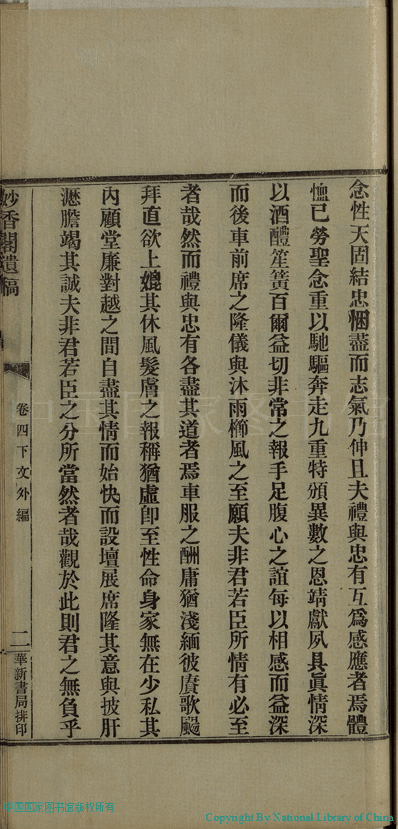 念性天固結忠悃盡而志氣乃伸且夫禮與忠有互爲感應者焉體
恤已勞聖念重以馳驅奔走九重特頒異數之恩靖獻夙具眞情深
以酒醴笙簧百爾益切非常之報手足腹心之誼每以相感而益深
而後車前席之隆儀與沐雨櫛風之至願夫非君若臣所情有必至
者哉然而禮與忠有各盡其道者焉車服之酬庸猶淺緬彼賡歌颺
拜直欲上媲其休風髮膚之報稱猶虛卽至性命身家無在少私其
內顧堂廉對越之間自盡其情而始快而設壇展席隆其意與披肝
瀝膽竭其誠夫非君若臣之分所當然者哉觀於此則君之無負乎
妙香閣遺稿
卷四下文外編
二
華新書局排印
中国国家图书馆版权所有
Copyright By National Library of China